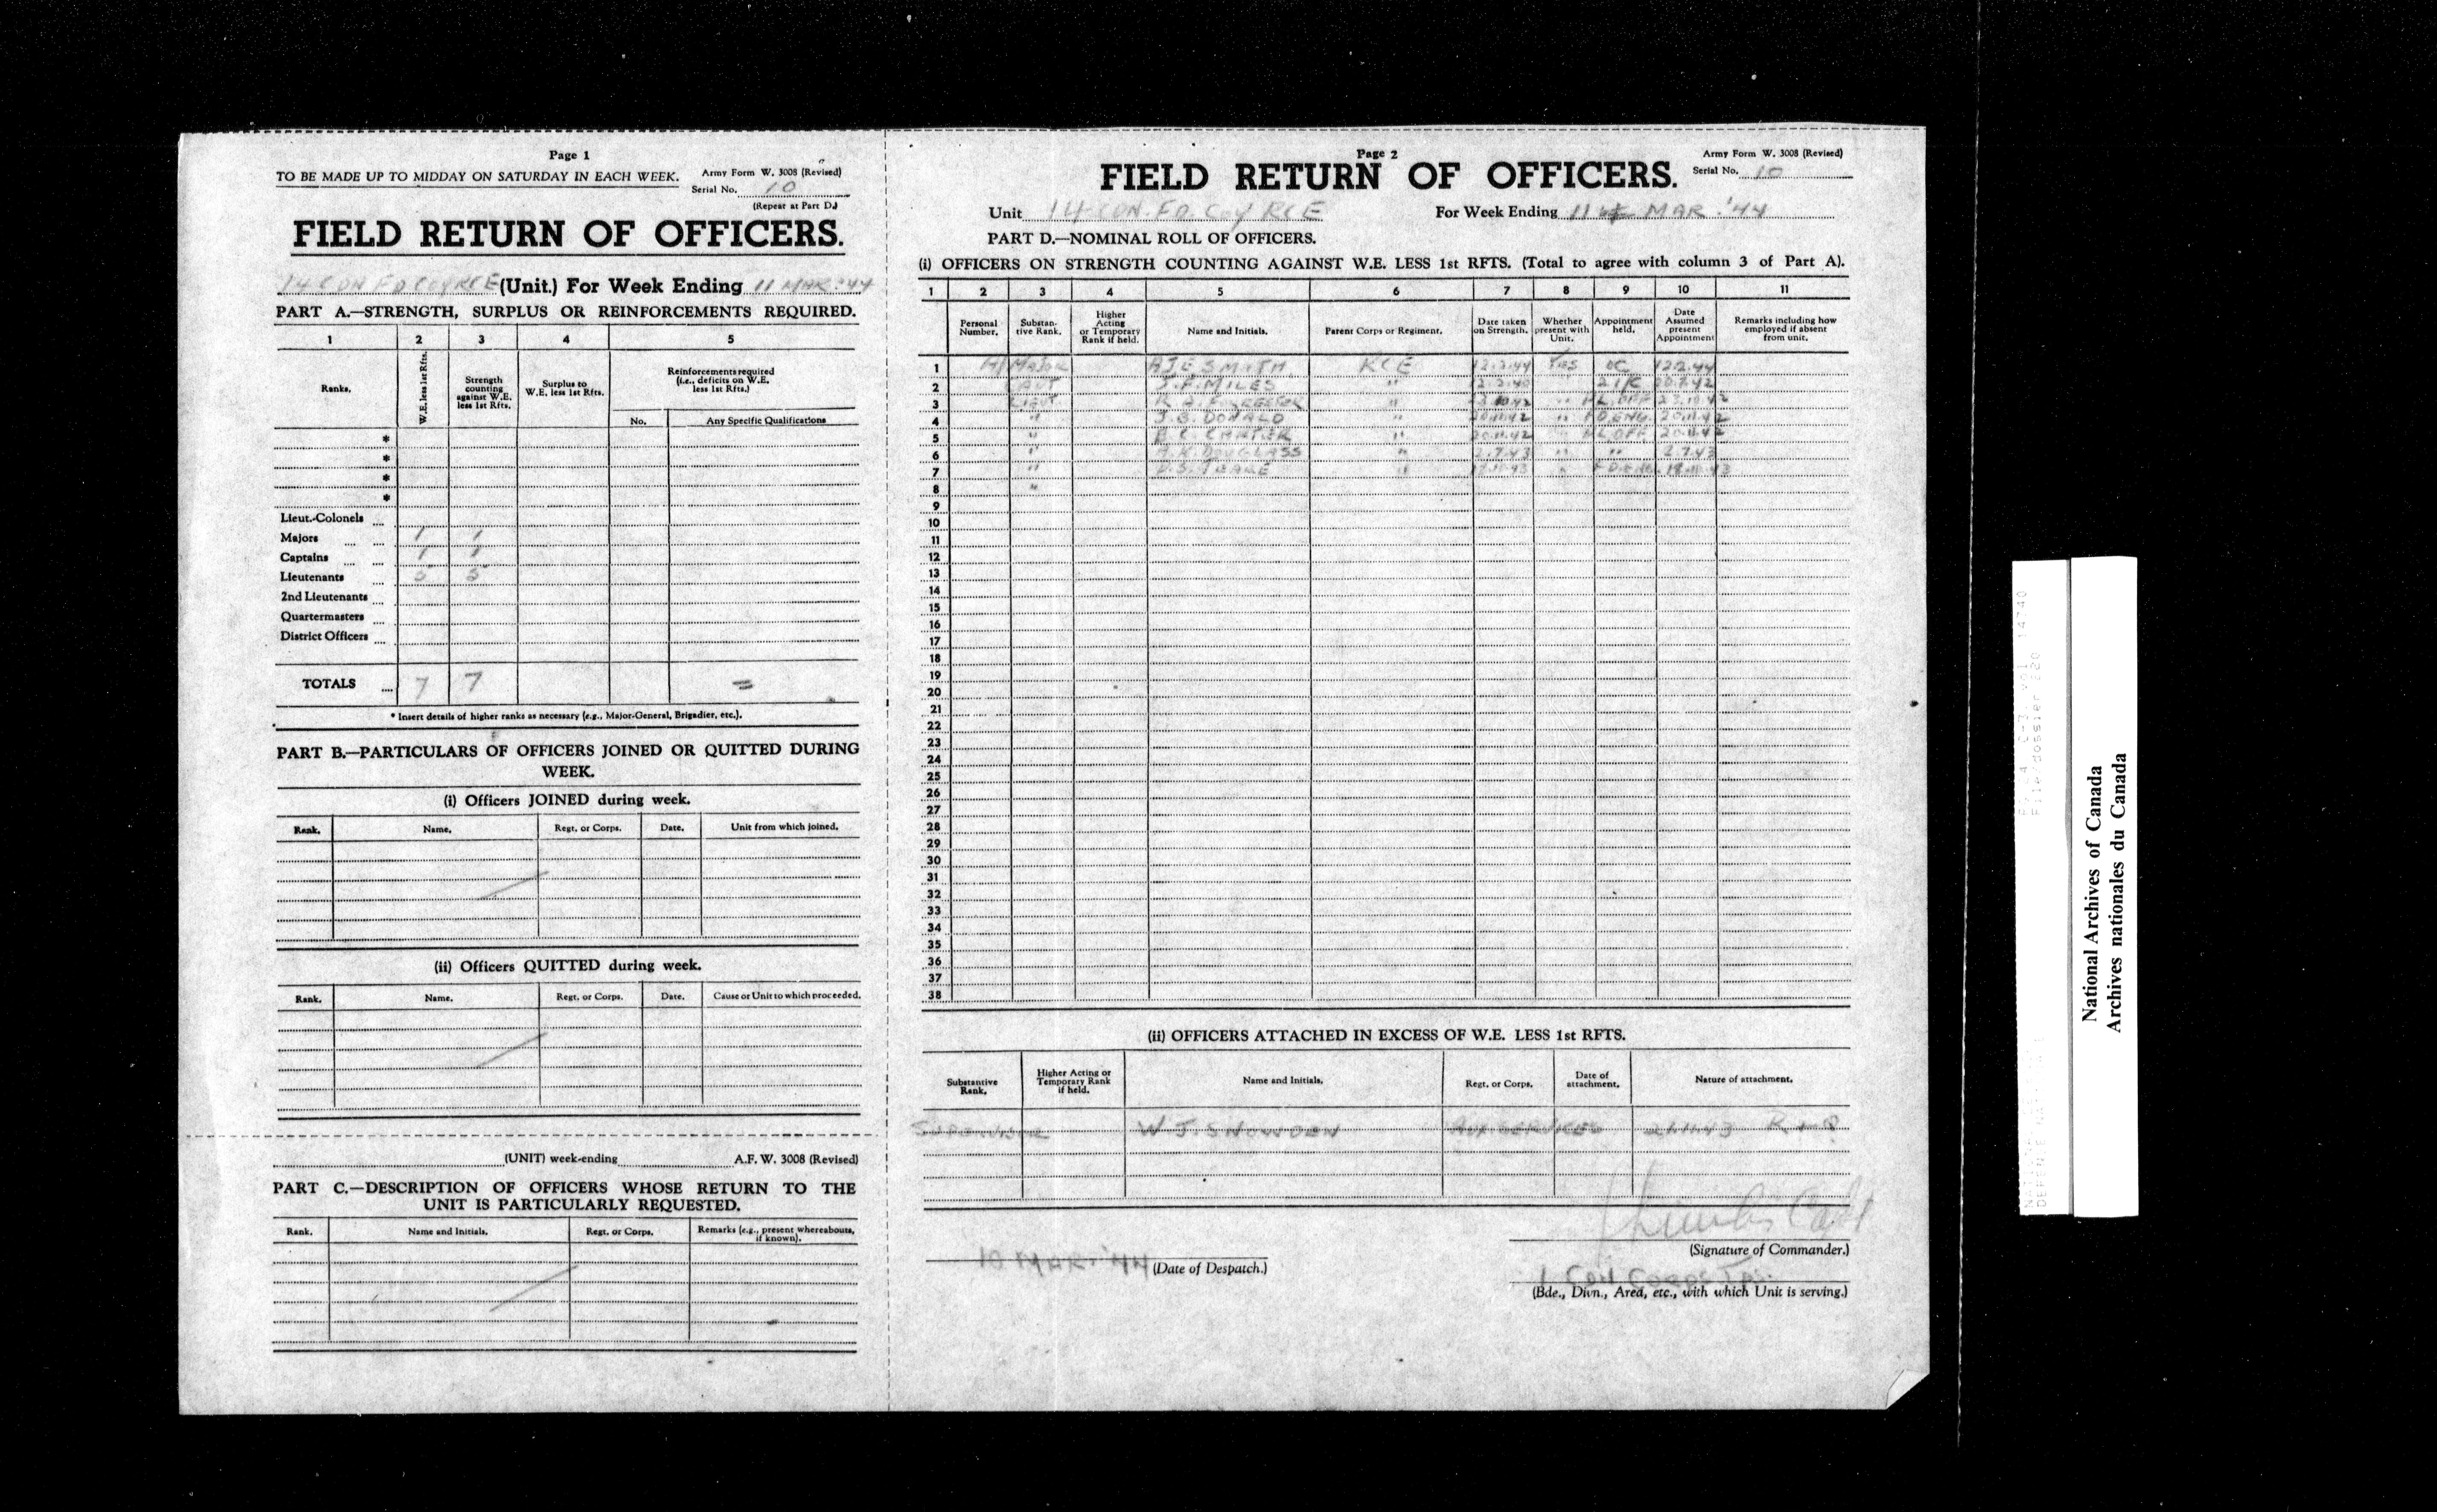 Page 1
TO BE MADE UP TO MIDDAY ON SATURDAY IN EACH WEEK.
Army Form W. 3008 (Revised)
Serial No. 10
(Repeat at Part D.)
FIELD RETURN OF OFFICERS.
14 CON FD COY RCE (Unit.) For Week Ending 11 MAR. '44
PART A.—STRENGTH, SURPLUS OR REINFORCEMENTS REQUIRED.
1 2 3 4 5
Ranks.
W.E. less 1st Rfts.
Strength counting against W.E. less 1st Rfts.
Surplus to W.E. less 1st Rfts.
Reinforcements required (i.e., deficits on W.E. less 1st Rfts.)
No. Any Specific Qualifications
*
*
*
*
Lieut.-Colonels ...
Majors ... ... 1 1
Captains ... ... 1 1
Lieutenants ... 5 5
2nd Lieutenants ...
Quartermasters ...
District Officers ...
TOTALS .... 7 7 =
* Insert details of higher ranks as necessary (e.g., Major-General, Brigadier, etc.).
PART B.—PARTICULARS OF OFFICERS JOINED OR QUITTED DURING
WEEK.
(i) Officers JOINED during week.
Rank. Name. Regt. or Corps. Date. Unit from which joined.
(ii) Officers QUITTED during week.
Rank. Name. Regt. or Corps. Date. Cause or Unit to which proceeded.
(UNIT) week-ending A.F. W. 3008 (Revised)
PART C.—DESCRIPTION OF OFFICERS WHOSE RETURN TO THE
UNIT IS PARTICULARLY REQUESTED.
Rank. Name and Initials. Regt. or Corps. Remarks (e.g., present whereabouts, if known).
Page 2
Army Form W. 3008 (Revised)
FIELD RETURN OF OFFICERS.
Serial No. 10
Unit 14 CON. FD COY RCE For Week Ending 11 MAR. '44
PART D.—NOMINAL ROLL OF OFFICERS.
(i) OFFICERS ON STRENGTH COUNTING AGAINST W.E. LESS 1st RFTS. (Total to agree with column 3 of Part A).
1 2 3 4 5 6 7 8 9 10 11
Personal Number.
Substantive Rank.
Higher Acting or Temporary Rank if held.
Name and Initials.
Parent Corps or Regiment.
Date taken on Strength.
Whether present with Unit.
Appointment held.
Date Assumed present Appointment
Remarks including how employed if absent from unit.
1 A/Major A.J.E. SMITH RCE 12.2.44 Yes OC 12.2.44
2 CAPT J.F. MILES " " 2 I/C 20.7.42
3 LIEUT FORRESTER " 23.10.42 " PL. OFF 23.10.42
4 " J.B. DONALD " 20.11.42 " FD ENG. 20.11.42
5 " CARTER " 20.11.42 " PL. OFF 20.11.42
6 " A.K. DOUGLASS " 2.7.43 " " 2.7.43
7 " " " FD ENG.
8 "
9
10
11
12
13
14
15
16
17
18
19
20
21
22
23
24
25
26
27
28
29
30
31
32
33
34
35
36
37
38
(ii) OFFICERS ATTACHED IN EXCESS OF W.E. LESS 1st RFTS.
Substantive Rank.
Higher Acting or Temporary Rank if held.
Name and Initials.
Regt. or Corps.
Date of attachment.
Nature of attachment.
SUPERVISOR W J. SNOWDEN AUX. SERVICES
10 MAR. '44 (Date of Despatch.)
Capt
(Signature of Commander.)
1 Cdn Corps Tps.
(Bde., Divn., Area, etc., with which Unit is serving.)
National Archives of Canada
Archives nationales du Canada